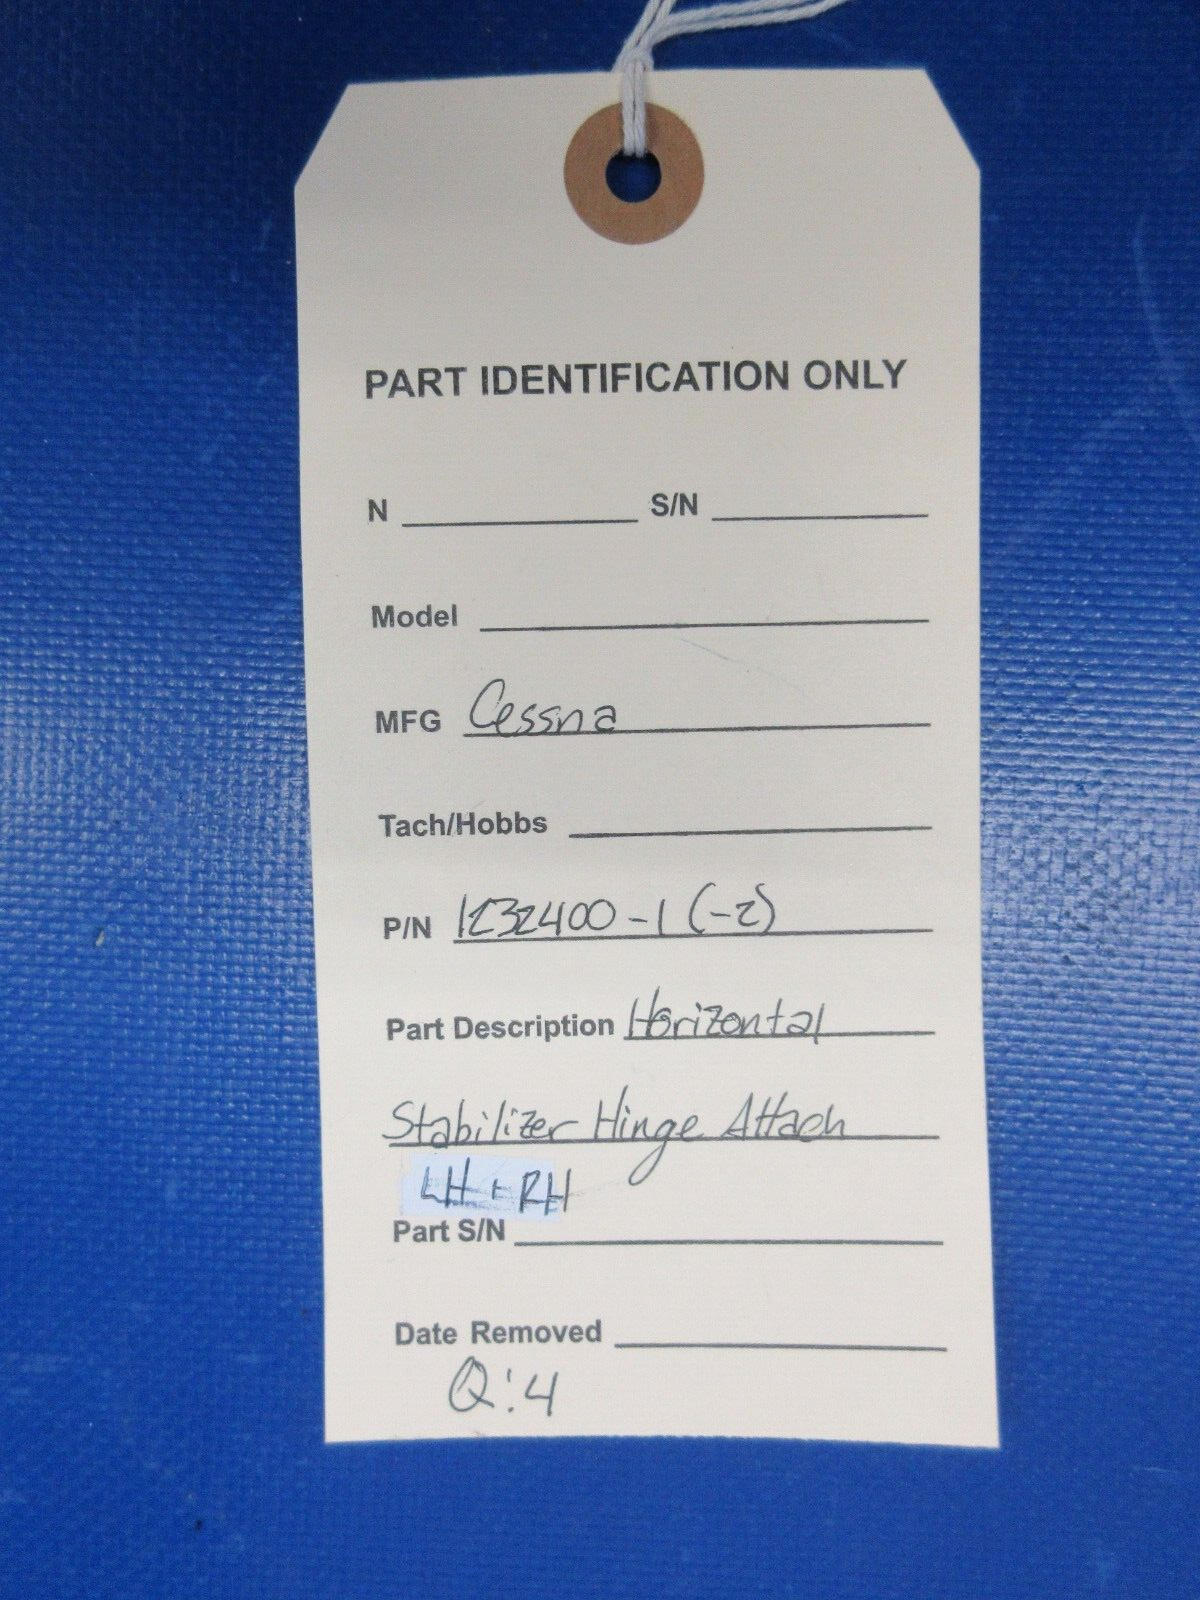 PART IDENTIFICATION ONLY
N S/N
Model
MFG Cessna
Tach/Hobbs
P/N 1232400-1 (-2)
Part Description Horizontal
Stabilizer Hinge Attach
LH + RH
Part S/N
Date Removed
Q:4